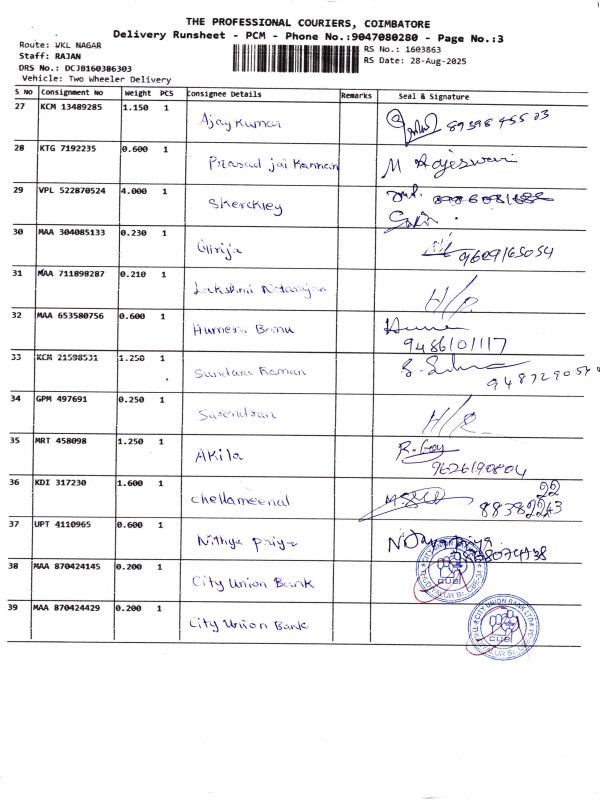 THE PROFESSIONAL COURIERS, COIMBATORE
Delivery Runsheet - PCM - Phone No.:9047080280 - Page No.:3
Route: WKL NAGAR
RS No.: 1603863
Staff: RAJAN
RS Date: 28-Aug-2025
DRS No.: DCJB160386303
Vehicle: Two Wheeler Delivery
S No Consignment No Weight PCS Consignee Details Remarks Seal & Signature
27 KCM 13489285 1.150 1 Ajay Kumar
28 KTG 7192235 0.600 1 Prasad jai Kannan M Rajeswari
29 VPL 522870524 4.000 1 Skerckley
30 MAA 304085133 0.230 1 Girija 9629165054
31 MAA 711898287 0.210 1 Lakshmi Natarajan H/R
32 MAA 653580756 0.600 1 Humera Banu
9486101117
33 KCM 21598531 1.250 1 Sundara Raman
34 GPM 497691 0.250 1 Surendran H/R
35 MRT 458098 1.250 1 Akila
9626190804
36 KDI 317230 1.600 1 chellameenal
22
8838 2243
37 UPT 4110965 0.600 1 Nithya priya
38 MAA 870424145 0.200 1 City Union Bank
CUB
39 MAA 870424429 0.200 1 City Union Bank
CITY UNION BANK LTD
CUB